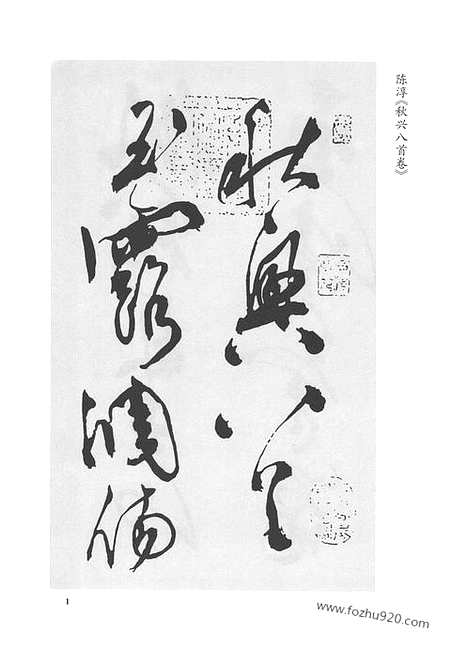 陈淳《秋兴八首卷》
秋興八首
玉露凋傷
1
www.fozhu920.com